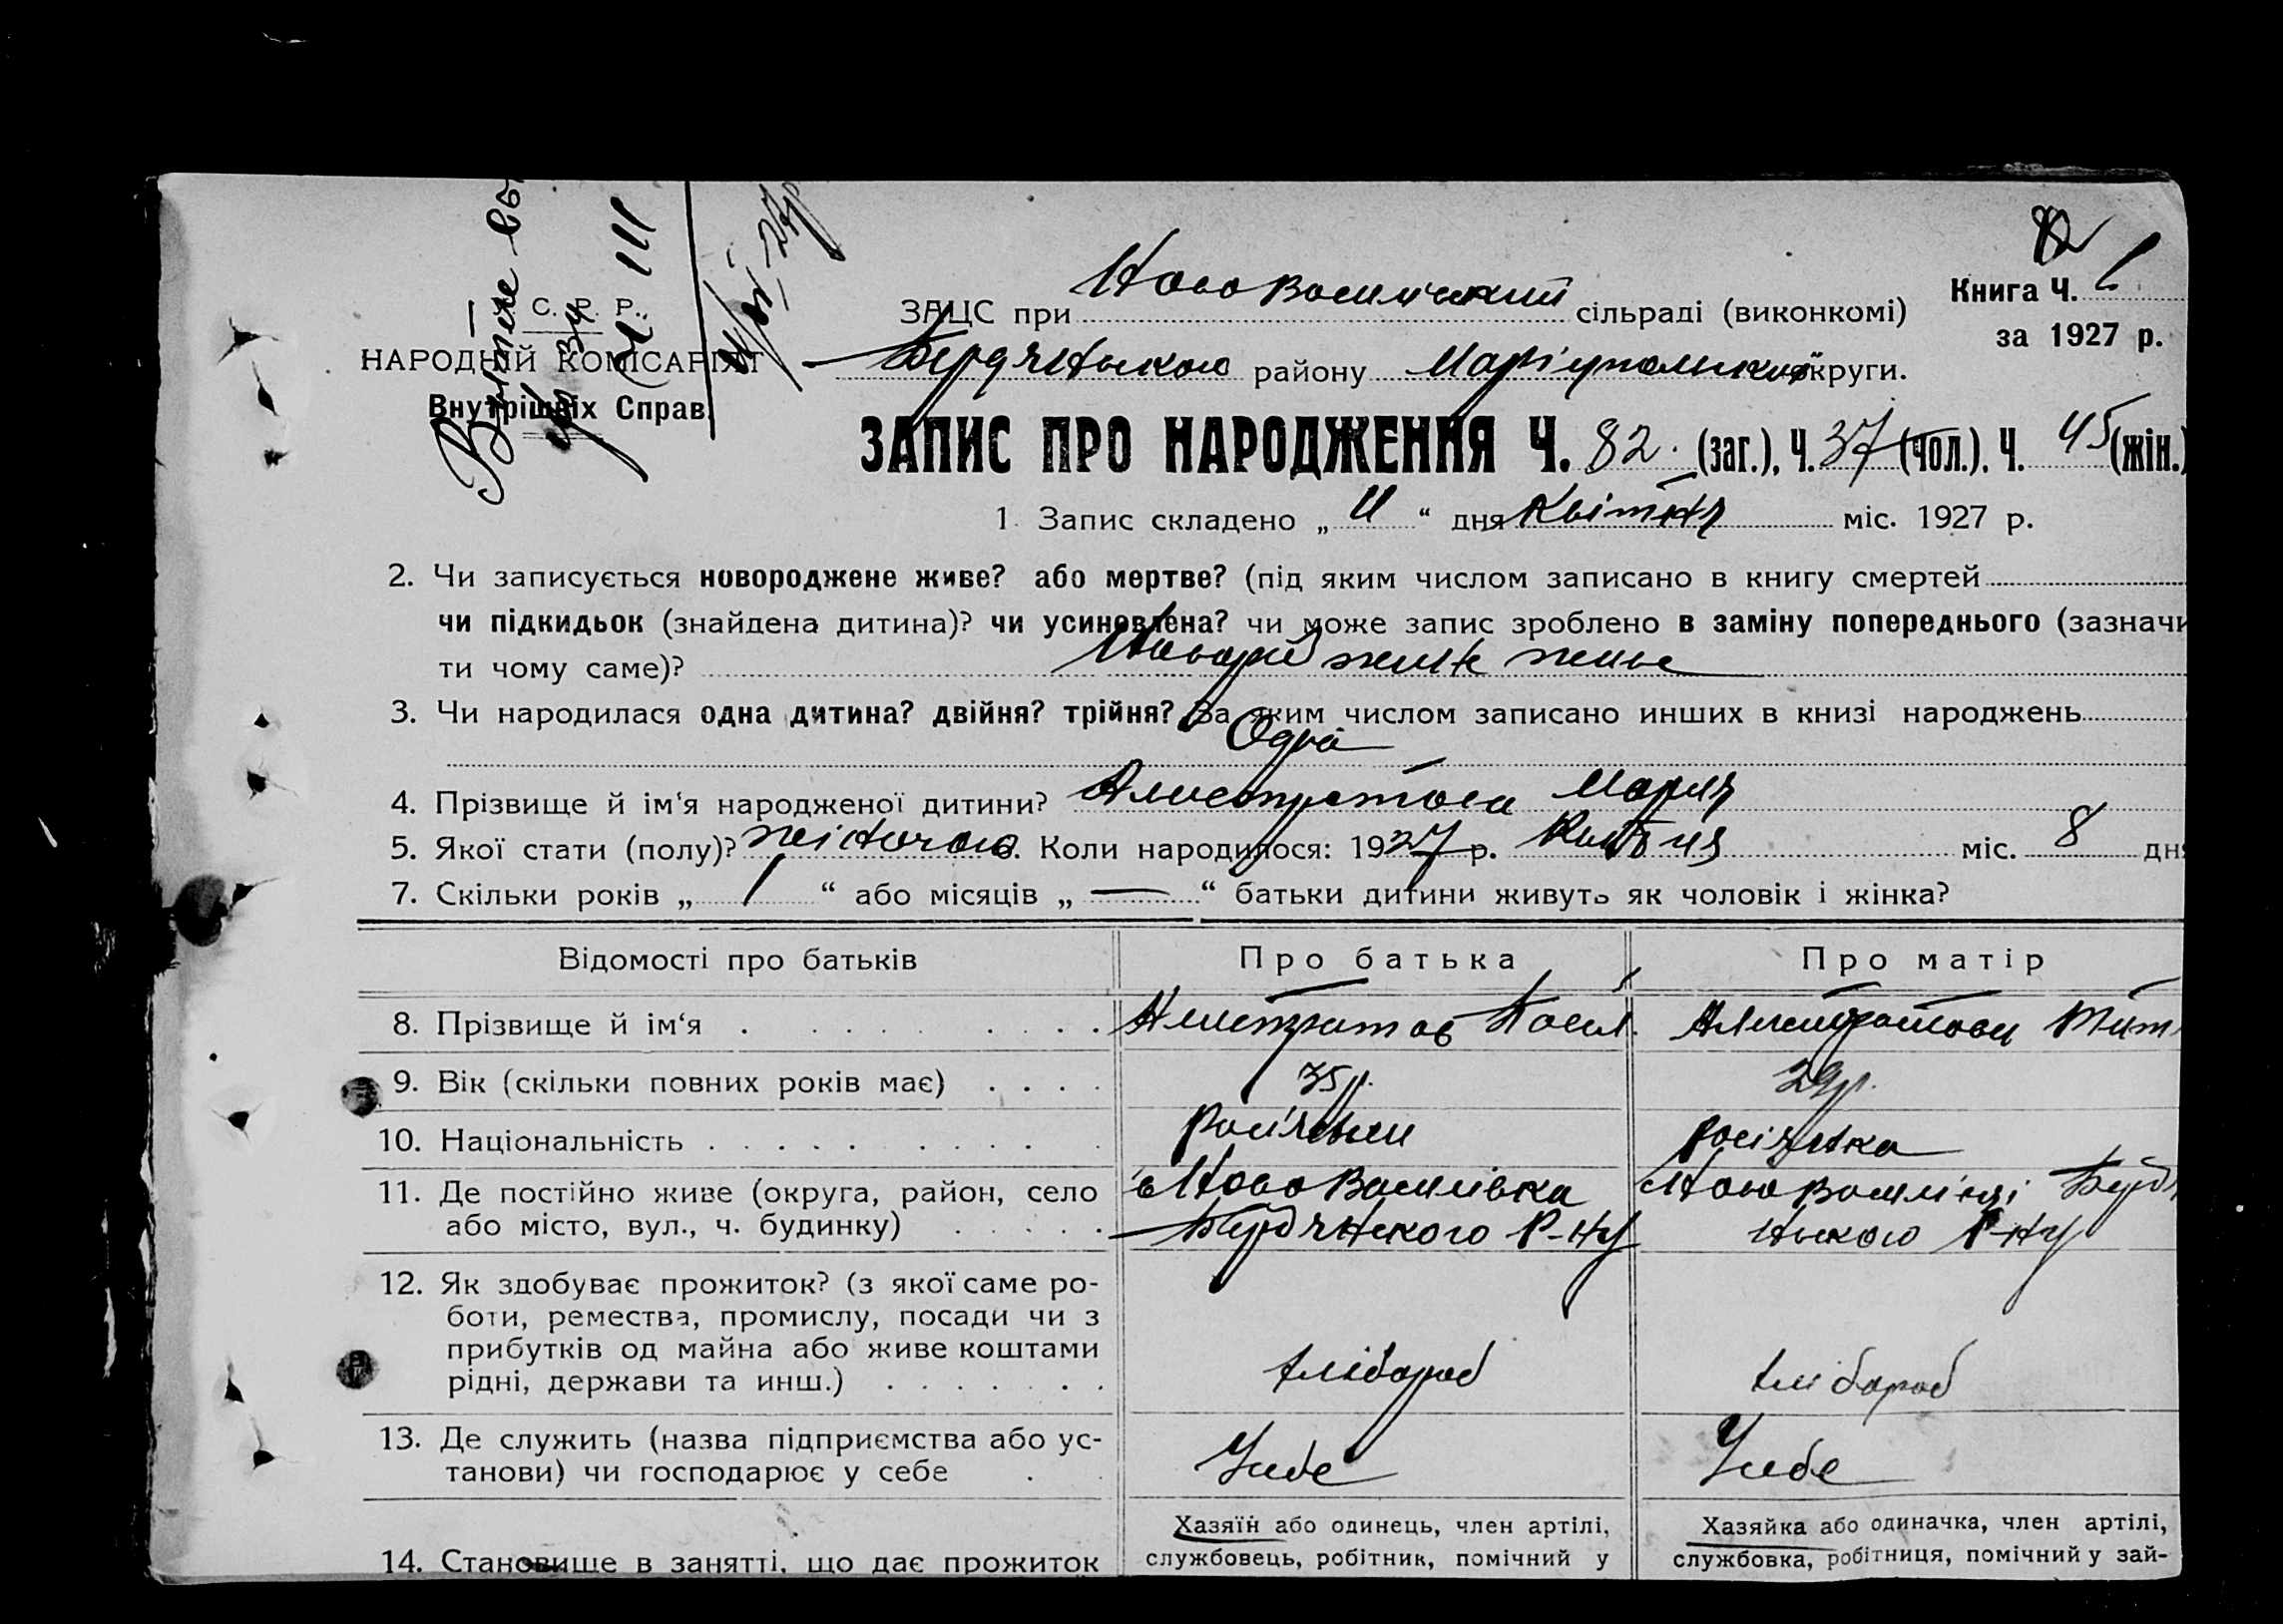 С. Р. Р.
НАРОДНІЙ КОМІСАРІЯТ
Внутрішніх Справ.
ЗАЦС при Нововасилівский сільраді (виконкомі)
Книга Ч. 1
за 1927 р.
Бердянського району Маріупольської округи.
ЗАПИС ПРО НАРОДЖЕННЯ Ч. 82. (заг.), Ч. 37 (чол.), Ч. 45 (жін.)
1. Запис складено „ 11 “ дня Квітня міс. 1927 р.
2. Чи записується новороджене живе? або мертве? (під яким числом записано в книгу смертей
чи підкидьок (знайдена дитина)? чи усиновлена? чи може запис зроблено в заміну попереднього (зазначи
ти чому саме)?
3. Чи народилася одна дитина? двійня? трійня? За яким числом записано инших в книзі народжень
Одна
4. Прізвище й ім‘я народженої дитини? Алистратова Мария
5. Якої стати (полу)? жіночою 6. Коли народилося: 1927 р. Квітня міс. 8 дня
7. Скільки років „ 1 “ або місяців „ — “ батьки дитини живуть як чоловік і жінка?
Відомості про батьків Про батька Про матір
8. Прізвище й ім‘я Алистратов Васил. Алистратова
9. Вік (скільки повних років має) 35 р. 29 р.
10. Національність росіянин росіянка
11. Де постійно живе (округа, район, село с Нововасилівка с Нововасилівці Бердя
або місто, вул., ч. будинку) Бердянского Р-ну нського Р-ну
12. Як здобуває прожиток? (з якої саме ро-
боти, ремества, промислу, посади чи з
прибутків од майна або живе коштами
рідні, держави та инш.) хлібороб хлібороб
13. Де служить (назва підприємства або ус-
танови) чи господарює у себе У себе У себе
14. Становище в занятті, що дає прожиток
Хазяїн або одинець, член артілі,
службовець, робітник, помічний у
Хазяйка або одиначка, член артілі,
службовка, робітниця, помічний у зай-